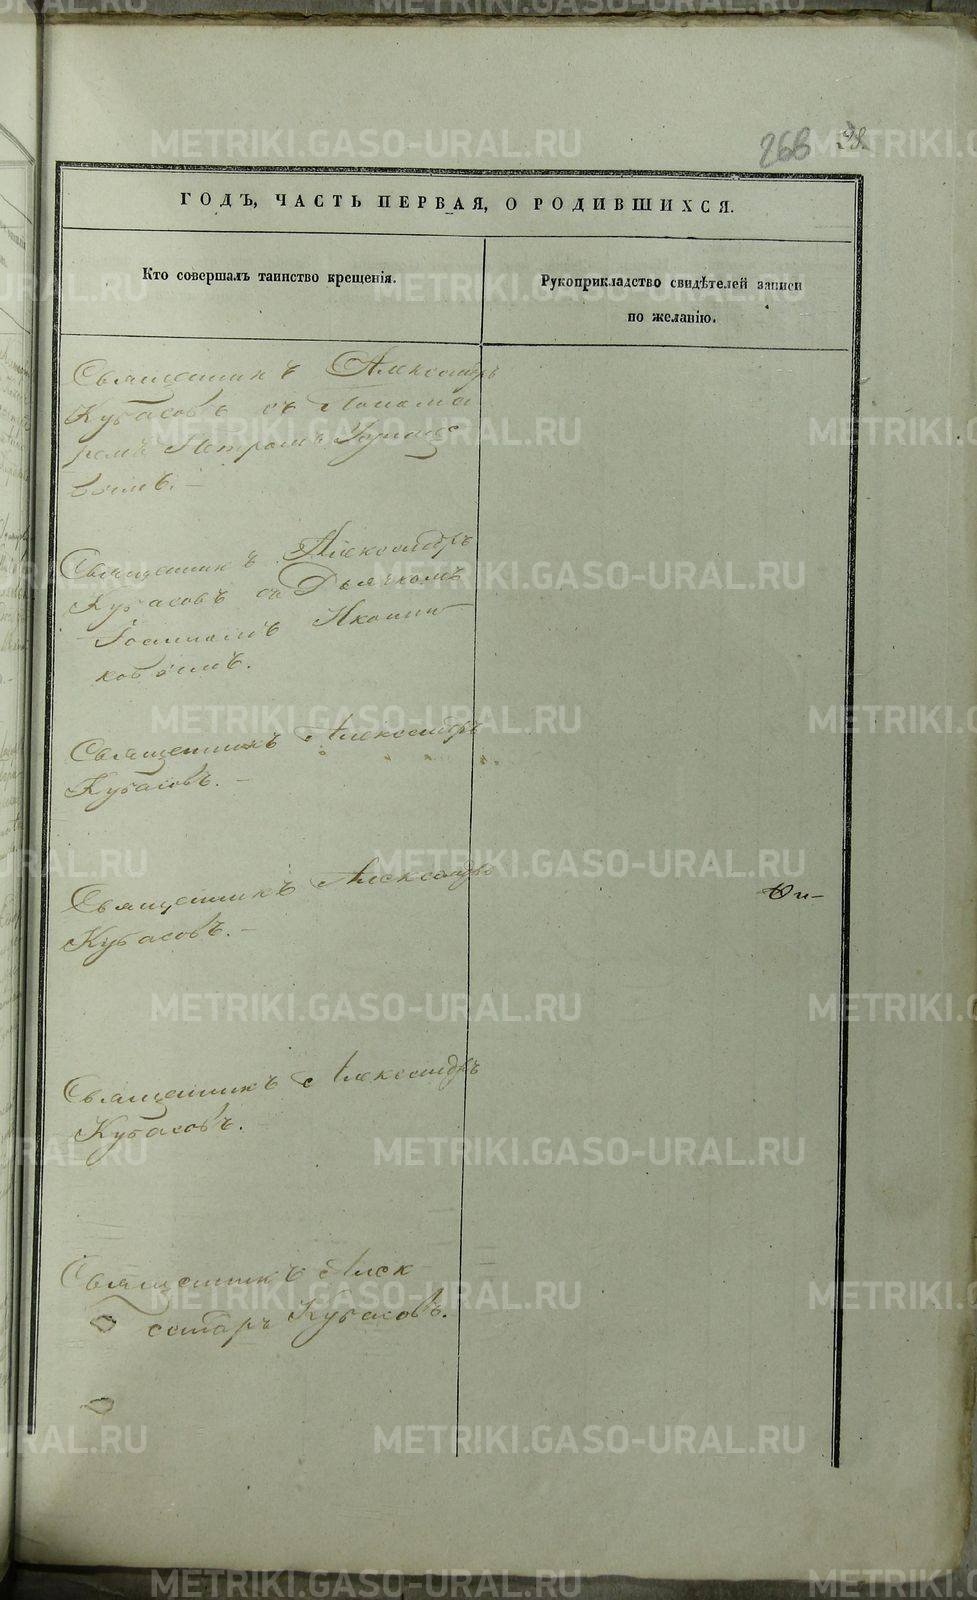 268 38.
ГОДЪ, ЧАСТЬ ПЕРВАЯ, О РОДИВШИХСЯ.
Кто совершалъ таинство крещенія.
Рукоприкладство свидѣтелей записи
по желанію.
Священникъ Александръ
Кубасовъ съ Понома
ремъ Петромъ
вымъ. –
Священникъ Александръ
Кубасовъ съ Дьячкомъ
Іоанномъ Иконни
ковымъ.
Священникъ Александръ
Кубасовъ. –
Священникъ Александръ
Кубасовъ. –
Священникъ Александръ
Кубасовъ.
Священникъ Алек
сандръ Кубасовъ.
METRIKI.GASO-URAL.RU